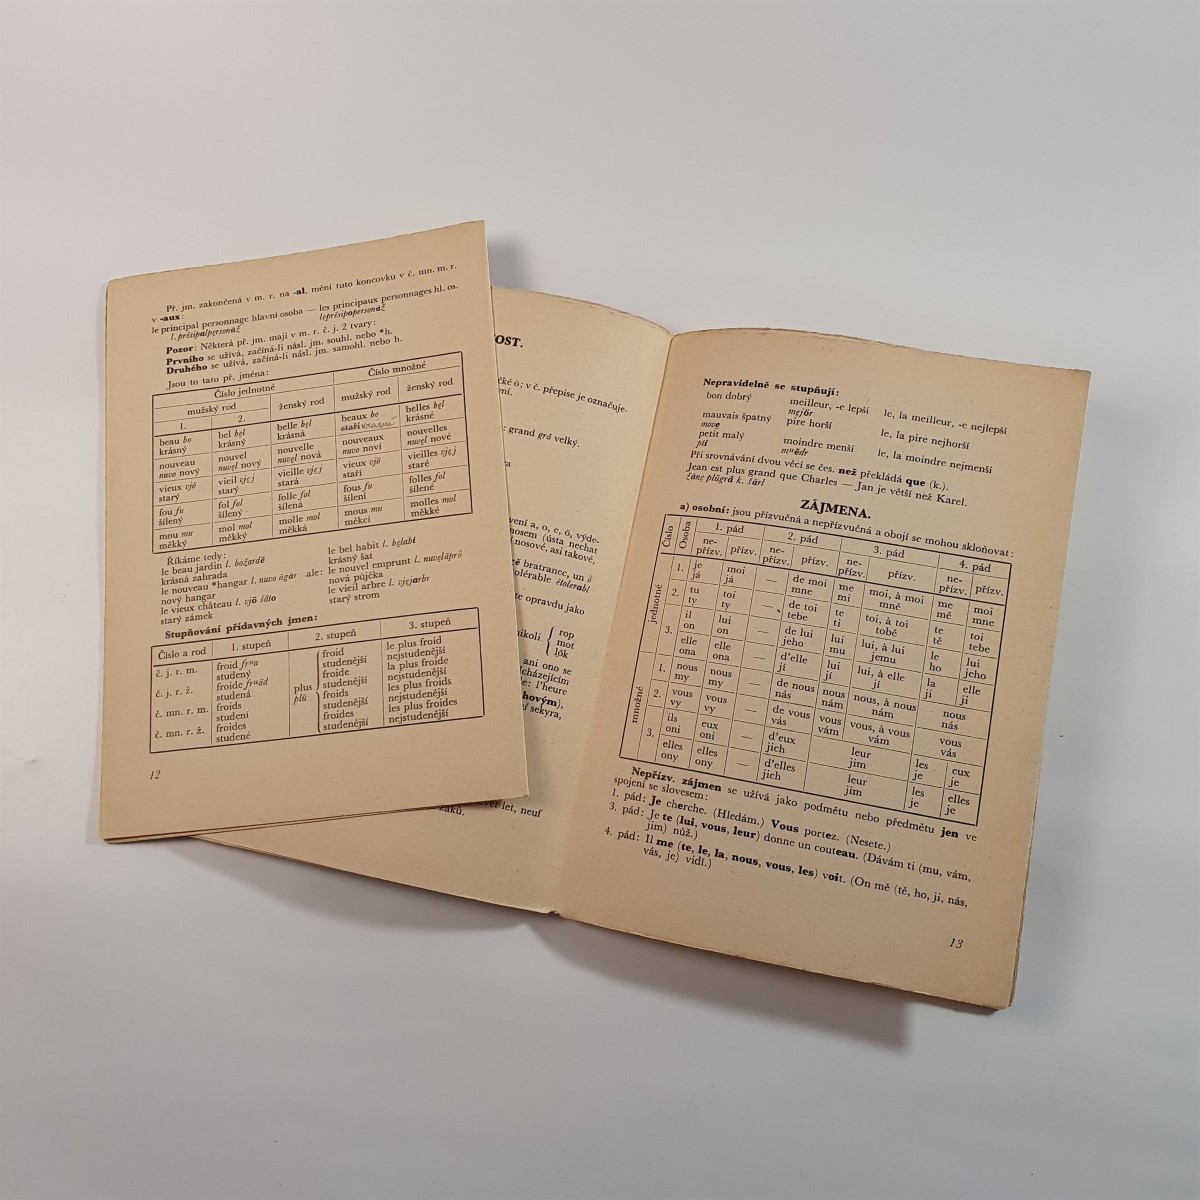 Př. jm. zakončená v m. r. na -al, mění tuto koncovku v č. mn. m. r.
v -aux:
le principal personnage hlavní osoba — les principaux personnages hl. os.
Pozor: Některá př. jm. mají v m. r. č. j. 2 tvary:
Prvního se užívá, začíná-li násl. jm. souhl. nebo *h.
Druhého se užívá, začíná-li násl. jm. samohl. nebo h.
Jsou to tato př. jména:
Číslo jednotné Číslo množné
mužský rod ženský rod mužský rod ženský rod
1. 2.
beau bo bel bęl belle bęl beaux bo belles bęl
krásný krásný krásná staří krásné
nouveau nouvel nouvelle nouveaux nouvelles
nuvo nový nuvęl nový nuvęl nová nuvo noví nuvęl nové
vieux vjö vieil vjęj vieille vjęj vieux vjö vieilles vjęj
starý starý stará staří staré
fou fu fol fol folle fol fous fu folles fol
šílený šílený šílená šílení šílené
mou mu mol mol molle mol mous mu molles mol
měkký měkký měkká měkcí měkké
Říkáme tedy: le bel habit l. bęlabi
le beau jardin l. božardě krásný šat
krásná zahrada ale: le nouvel emprunt l. nuvęlãprö
le nouveau *hangar l. nuvo ãgar nová půjčka
nový hangar le vieil arbre l. vjęjarbr
le vieux château l. vjö šato starý strom
starý zámek
Stupňování přídavných jmen:
Číslo a rod 1. stupeň 2. stupeň 3. stupeň
č. j. r. m. froid studený plus plü froid studenější le plus froid nejstudenější
č. j. r. ž. froide studená froide studenější la plus froide nejstudenější
č. mn. r. m. froids studení froids studenější les plus froids nejstudenější
č. mn. r. ž. froides studené froides studenější les plus froides nejstudenější
12
OST.
cké ö; v č. přepise je označuje-
ní.
grand grã velký.
a
vení a, o, e, ö, výde-
nosem (ústa nechat
nosové, asi takové,
bratranec, un ö
tolérable étolerabl
te opravdu jako
nikoli. rop
mot
lök
ani ono se
dcházejícím
le: l'heure
hovým),
sekyra,
let, neuf
žáků.
Nepravidelně se stupňují:
bon dobrý meilleur, -e lepší le, la meilleur, -e nejlepší
mejör
mauvais špatný pire horší le, la pire nejhorší
move
petit malý moindre menší le, la moindre nejmenší
pti
Při srovnávání dvou věcí se čes. než překládá que (k.).
Jean est plus grand que Charles — Jan je větší než Karel.
žãnę plügrã k. šarl
ZÁJMENA.
a) osobní: jsou přízvučná a nepřízvučná a obojí se mohou skloňovat:
Číslo Osoba 1. pád 2. pád 3. pád 4. pád
ne-přízv. přízv. ne-přízv. přízv. ne-přízv. přízv. ne-přízv. přízv.
jednotné 1. je moi — de moi me moi, à moi me moi
já já mne mi mně mě mne
2. tu toi — de toi te toi, à toi te toi
ty ty tebe ti tobě tě tebe
3. il lui — de lui lui lui, à lui le lui
on on jeho mu jemu ho jeho
elle elle — d'elle lui lui, à elle la elle
ona ona jí jí jí ji ji
množné 1. nous nous — de nous nous nous, à nous nous
my my nás nám nám nás
2. vous vous — de vous vous vous, à vous vous
vy vy vás vám vám vás
3. ils eux — d'eux leur les eux
oni oni jich jim je je
elles elles — d'elles leur les elles
ony ony jich jim je je
Nepřízv. zájmen se užívá jako podmětu nebo předmětu jen ve
spojení se slovesem:
1. pád: Je cherche. (Hledám.) Vous portez. (Nesete.)
3. pád: Je te (lui, vous, leur) donne un couteau. (Dávám ti (mu, vám,
jim) nůž.)
4. pád: Il me (te, le, la, nous, vous, les) voit. (On mě (tě, ho, ji, nás,
vás, je) vidí.)
13